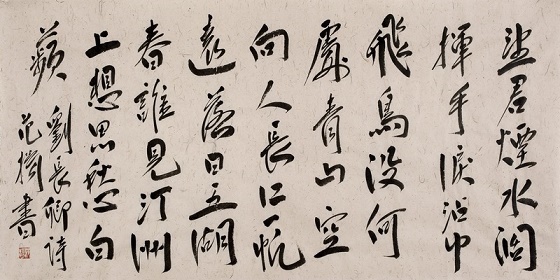 望君煙水闊
揮手淚沾巾
飛鳥没何
處青山空
向人長江一帆
遠落日五湖
春誰見汀洲
上想思愁白
蘋
劉長卿詩
范書